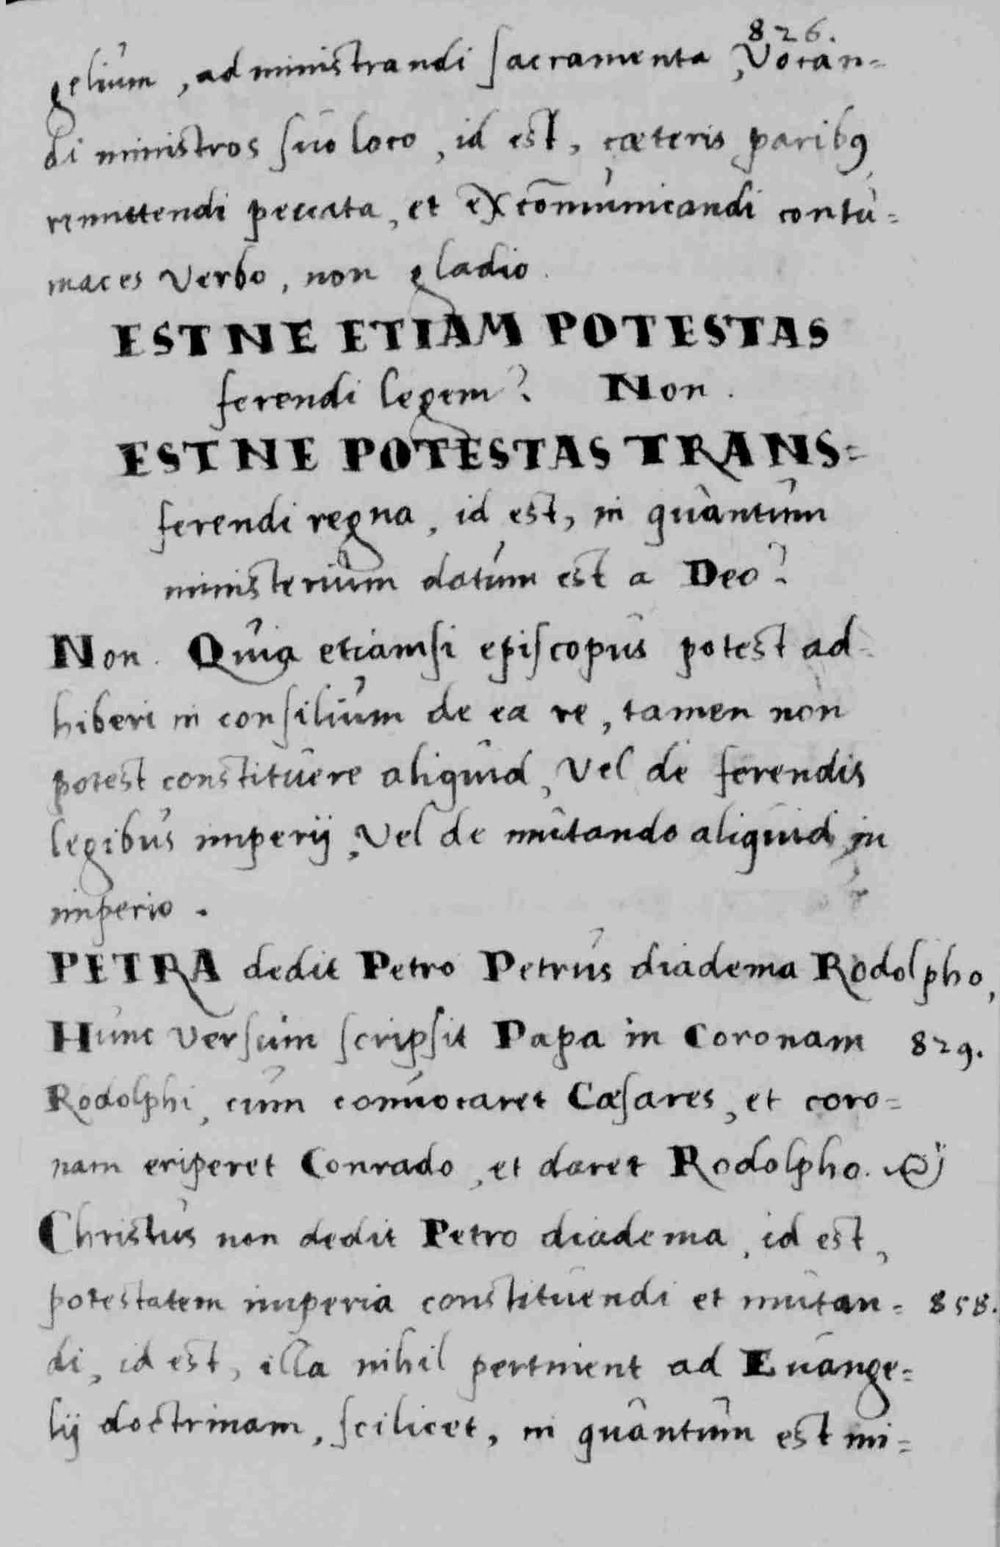 826.
gelium, administrandi sacramenta, Vocan=
di ministros suo loco, id est, cæteris paribꝯ
remittendi peccata, et excōmunicandi contu=
maces verbo, non gladio.
ESTNE ETIAM POTESTAS
ferendi legem? Non.
ESTNE POTESTAS TRANS=
ferendi regna, id est, in quantum
ministerium datum est a Deo?
Non. Quia etiamsi episcopus potest ad-
hiberi in consilium de ea re, tamen non
potest constituere aliquid, Vel de ferendis
legibus imperij, Vel de mutando aliquid in
imperio.
PETRA dedit Petro Petrus diadema Rodolpho,
Hunc versum scripsit Papa in Coronam 829.
Rodolphi, cum conuocaret Cæsares, et coro=
nam eriperet Conrado, et daret Rodolpho.
Christus non dedit Petro diadema, id est,
potestatem imperia constituendi et mutan= 858.
di, id est, illa nihil pertinent ad Euange=
lij doctrinam, scilicet, in quantum est mi=